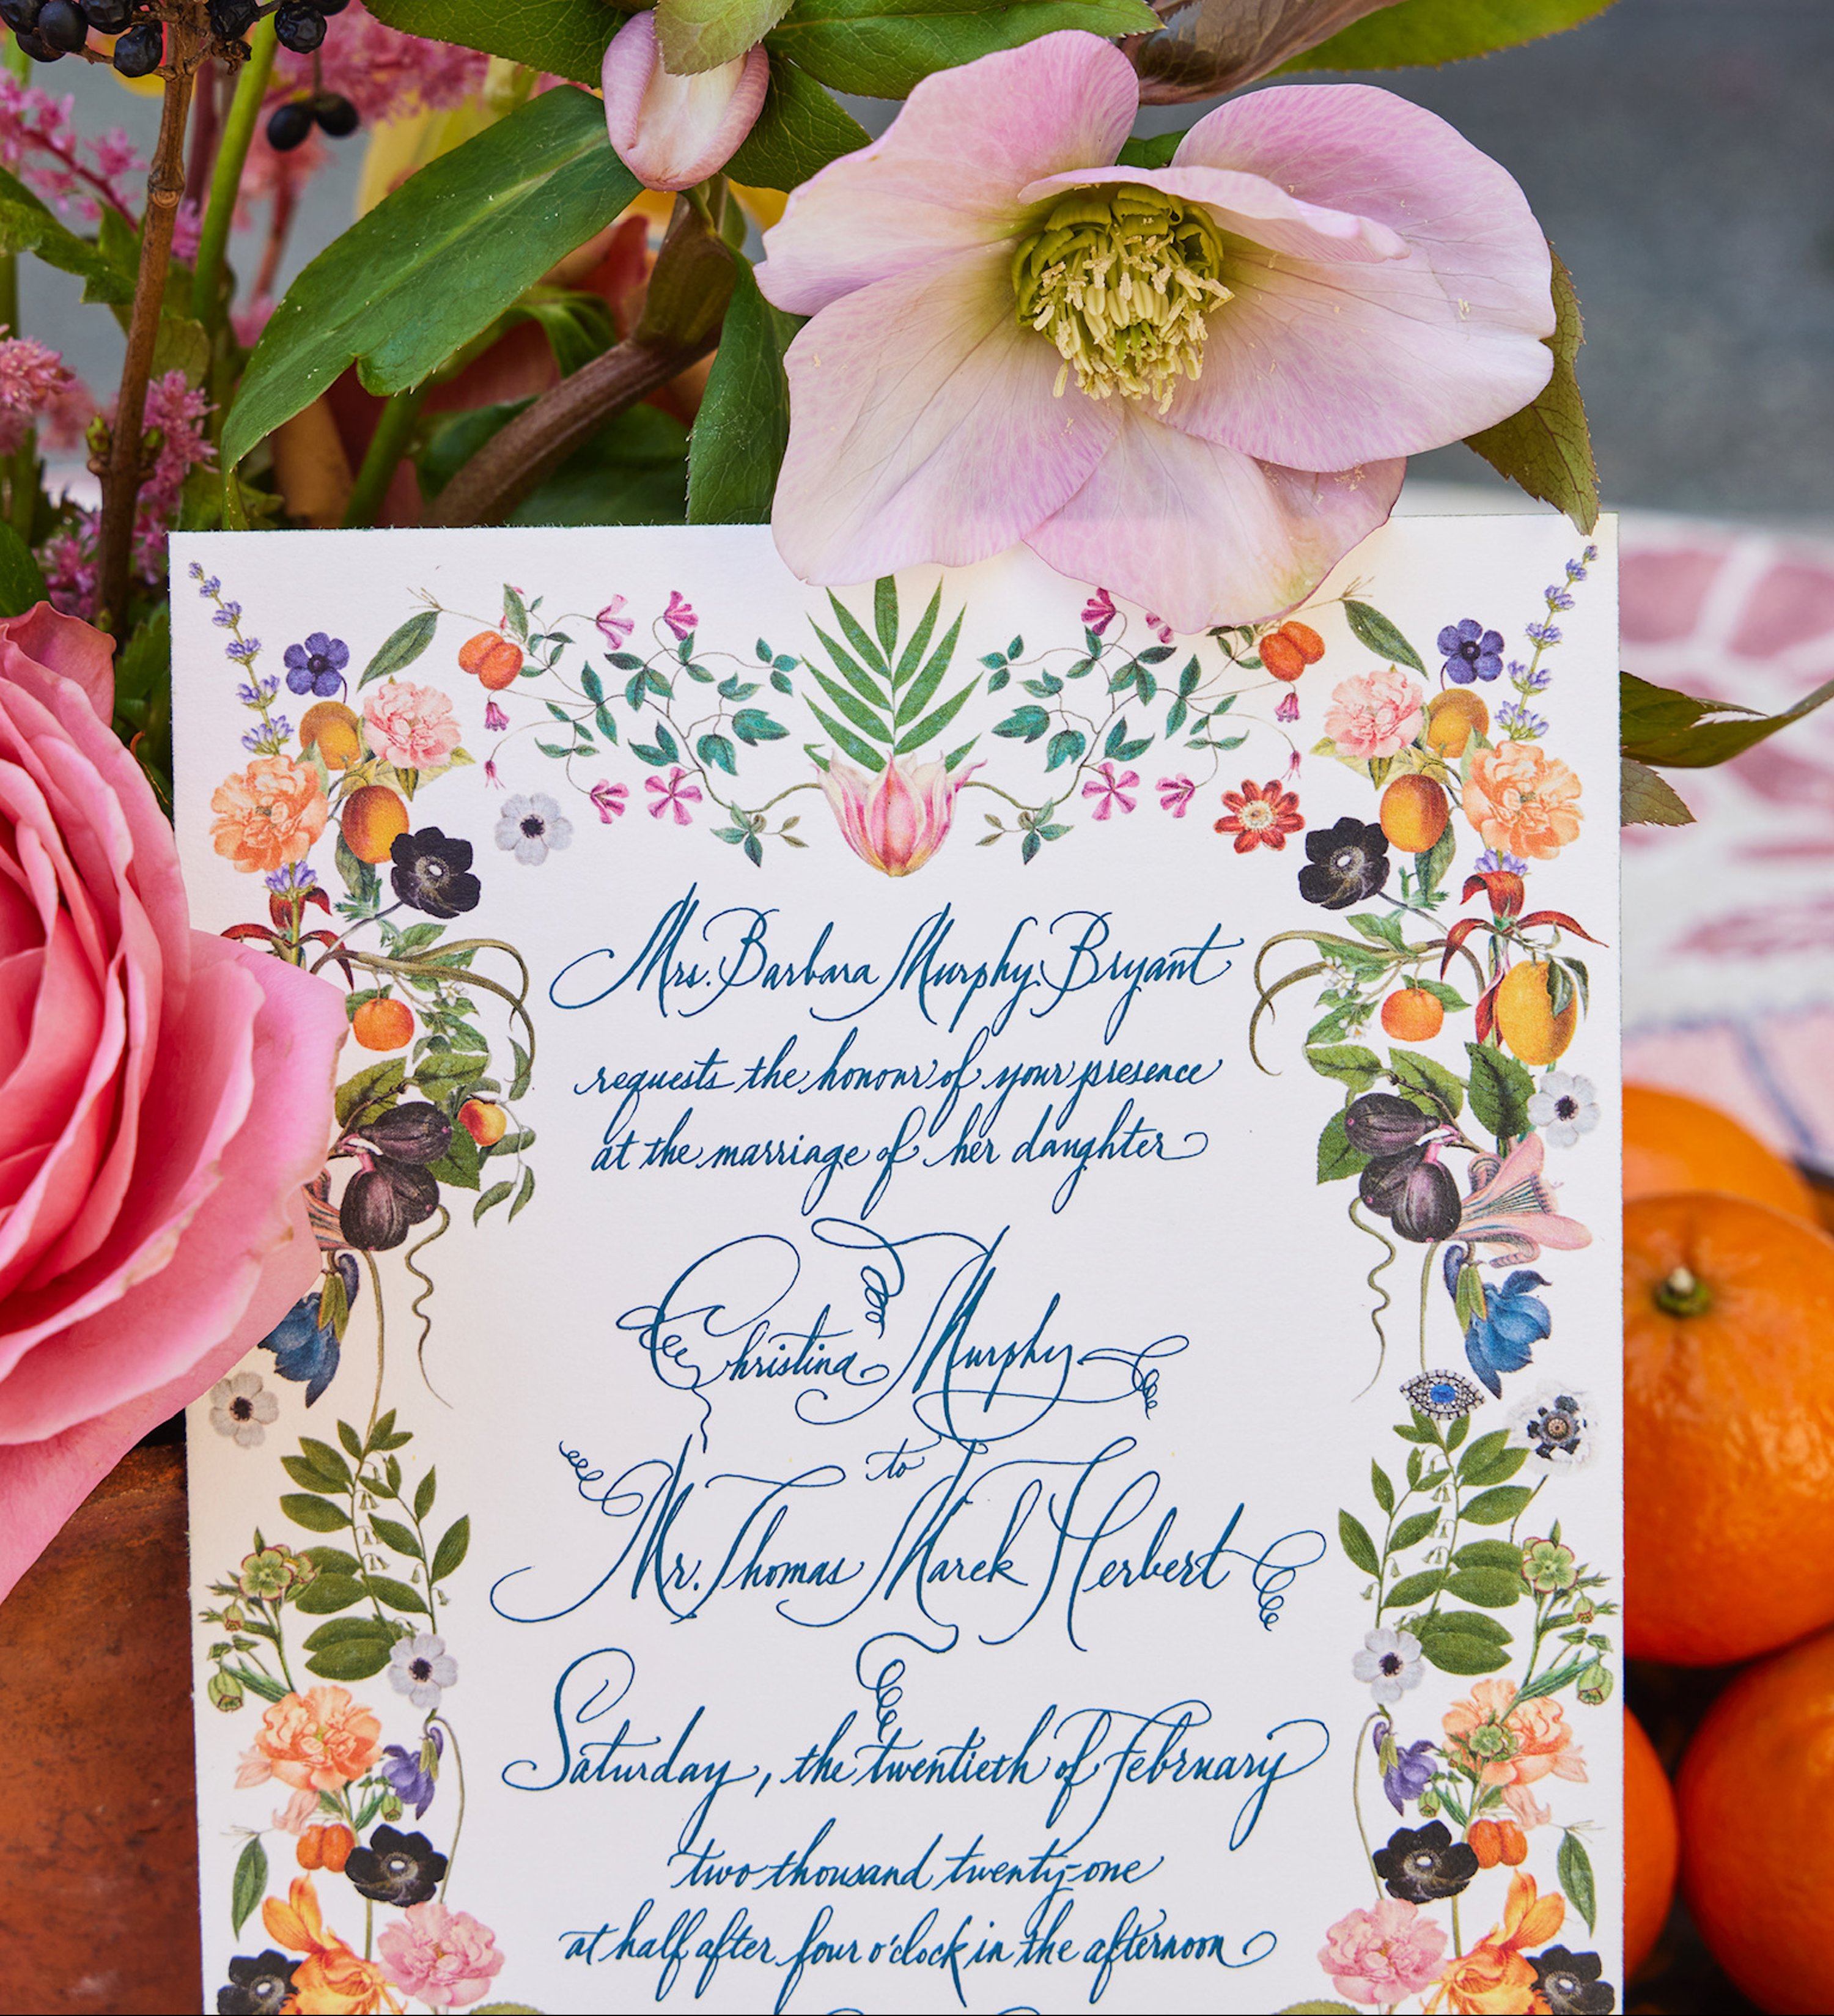 Mrs. Barbara Murphy Bryant
requests the honour of your presence
at the marriage of her daughter
Christina Murphy
to
Mr. Thomas Marek Herbert
Saturday, the twentieth of February
two thousand twenty-one
at half after four o'clock in the afternoon